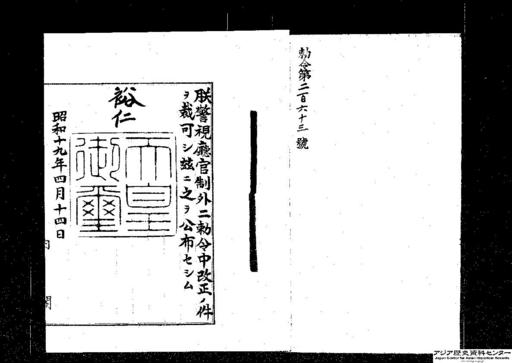 勅令第二百六十三號
朕警視廳官制外二勅令中改正ノ件
ヲ裁可シ玆ニ之ヲ公布セシム
裕仁
天皇
御璽
昭和十九年四月十四日
内閣
アジア歴史資料センター
Japan Center for Asian Historical Records